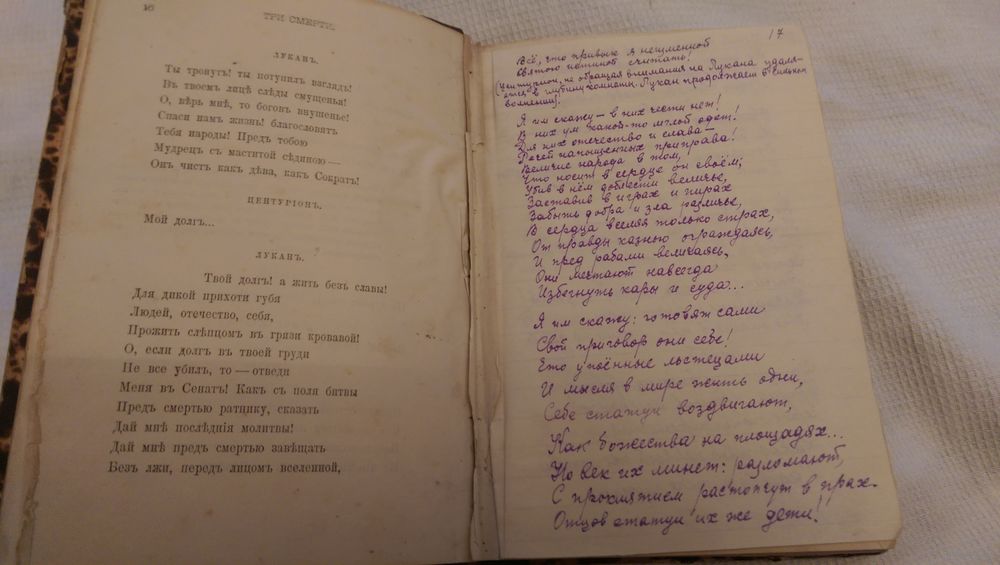 16
ТРИ СМЕРТИ.
ЛУКАНЪ.
Ты тронутъ! ты потупилъ взглядъ!
Въ твоемъ лицѣ слѣды смущенья!
О, вѣрь мнѣ, то боговъ внушенье!
Спаси намъ жизнь! благословятъ
Тебя народы! Предъ тобою
Мудрецъ съ маститой сѣдиною —
Онъ чистъ какъ дѣва, какъ Сократъ!
ЦЕНТУРІОНЪ.
Мой долгъ...
ЛУКАНЪ.
Твой долгъ! а жить безъ славы!
Для дикой прихоти губя
Людей, отечество, себя,
Прожить слѣпцомъ въ грязи кровавой!
О, если долгъ въ твоей груди
Не все убилъ, то — отведи
Меня въ Сенатъ! Какъ съ поля битвы
Предъ смертью ратнику, сказать
Дай мнѣ послѣднія молитвы!
Дай мнѣ предъ смертью завѣщать
Безъ лжи, передъ лицомъ вселенной,
17
Всё, что привык я неизменной
Святою истиной считать!
(Центурион, не обращая внимания на Лукана удаля-
ется в глубину комнаты. Лукан продолжает в сильном
волнении).
Я им скажу — в них чести нет!
В них ум какой-то мглой одет!
Для них отечество и слава —
Речей напыщенных приправа!
Величие народа в том,
Что носит в сердце он своём;
Убив в нём доблести величье,
Заставив в играх и пирах
Забыть добра и зла различье,
В сердца вселяя только страх,
От правды казнью ограждаясь,
И пред рабами величаясь,
Они мечтают навсегда
Избегнуть кары и суда...
Я им скажу: готовят сами
Свой приговор они себе!
Что упоённые льстецами
И мысля в мире жить одни,
Себе статуи воздвигают,
Как божества на площадях...
Но век их минет: разломают,
С проклятием растопчут в прах.
Отцов статуи их же дети!